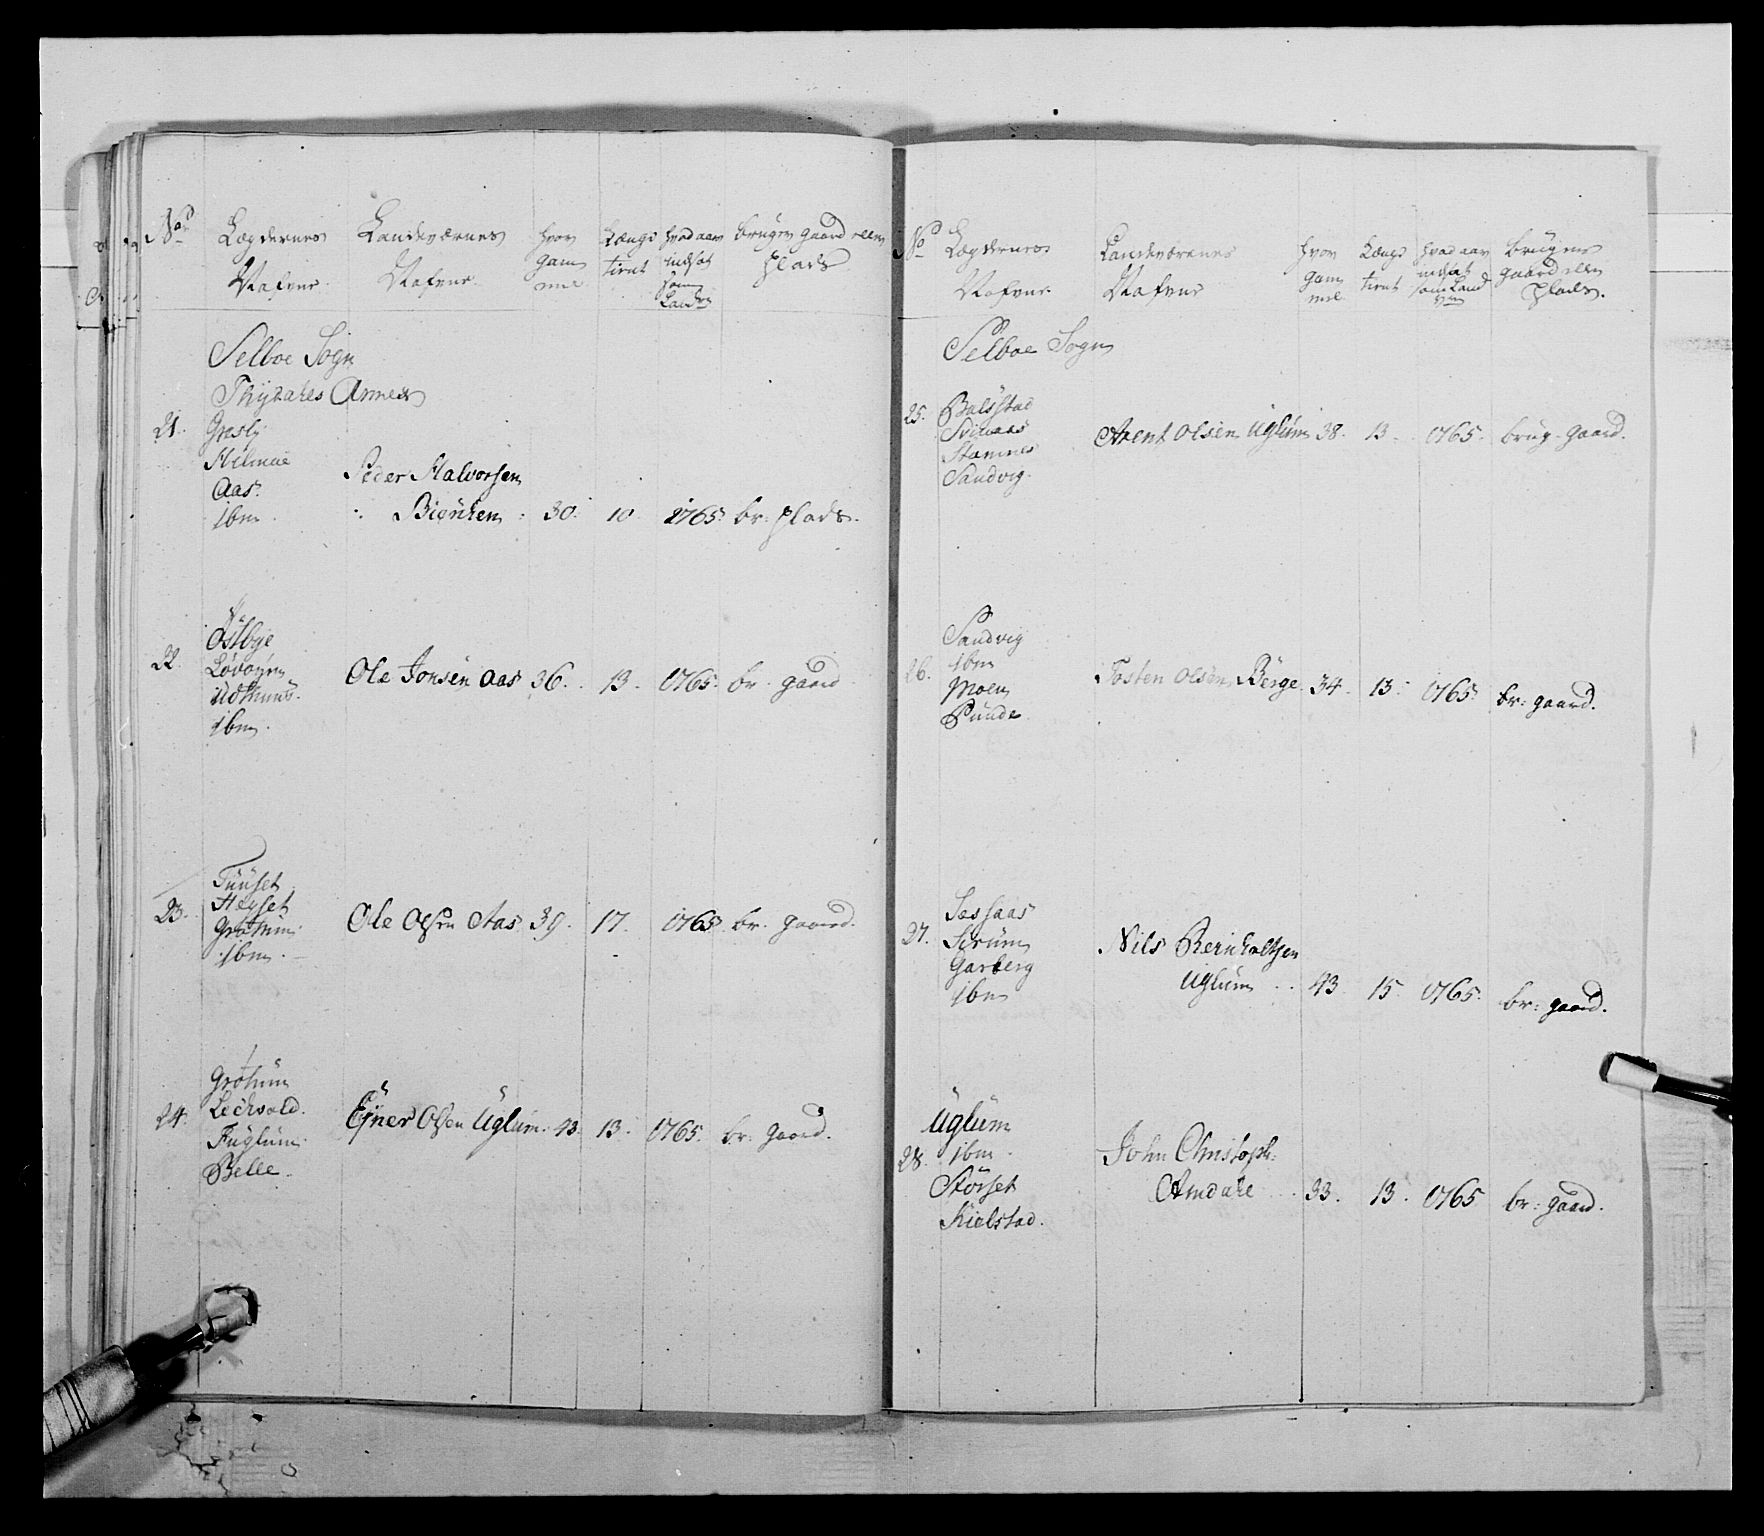 No
Lægdernes Nafne
Landeværnes Nafne
hvor gam mel
Længe tient
hvad aar indsat som Landv
bruger gaard eller plads
Selboe Sogn
Thydahes Annex
21. Græsly
Hilmoe
Aas.
ibm
Peder Halvorsen
Biørken 30. 10 1765. br: plads.
22. Østbye
Løvøyen
ibm.
Ole Jonsen Aas 36. 13. 1765. br. gaard
23. Tuuset
Heyset
Grøtum
ibm.
Ole Olsen Aas 39. 17. 1765 br. gaard.
24. Grøtum
Leihvold.
Fuglum.
Belle.
Ejner Olsen Uglum. 43. 13. 1765. br: gaard.
No
Lægdernes Nafne
Landeværenes Nafne
hvor gam mel
Længe tient
hvad aar indsat som Land vn
bruger gaard eller plads.
Selboe Sogn
25. Balsstad
Svinaas
Stamnes
Sandvig.
Arent Olsen Uglum 38. 13. 1765. brug. gaard.
26. Sandvig
ibm
Moen
Tosten Olsen Berge 34. 13. 1765. br: gaard.
27. Sessaas
Sirum
Garberg
ibm
Nils Bernholtsen
Uglum 43. 15. 1765. br: gaard.
28. Uglum
ibm.
Størset
Kielstad.
John Christoph:
Amdahl 33. 13. 1765 br: gaard.